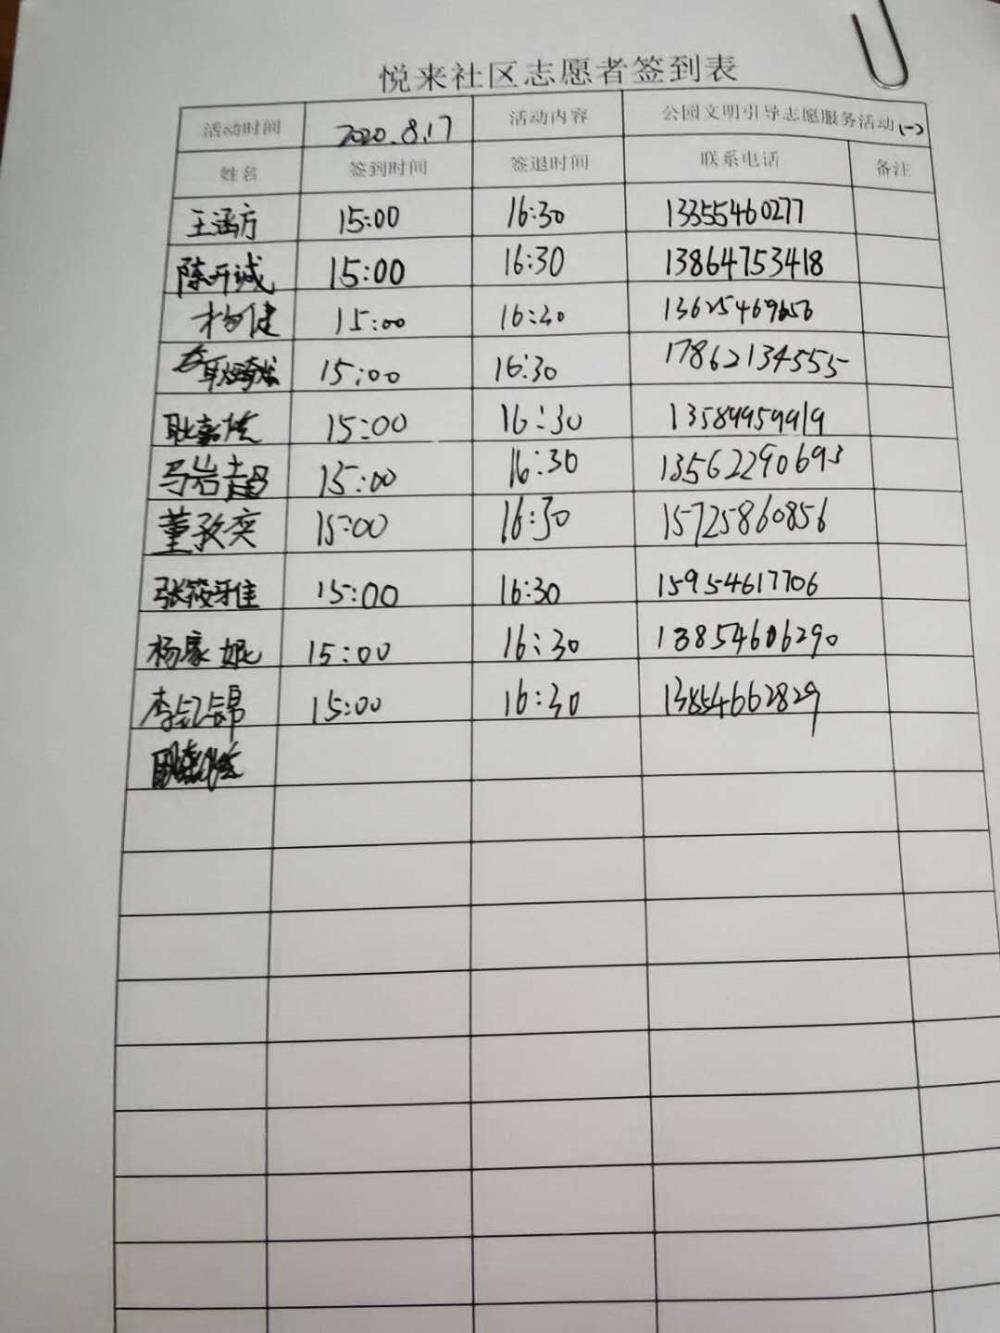 悦来社区志愿者签到表
活动时间 2020.8.17 活动内容 公园文明引导志愿服务活动(一)
姓名 签到时间 签退时间 联系电话 备注
王涵方 15:00 16:30 13355460277
陈开诚 15:00 16:30 13864753418
杨健 15:00 16:30 13625469656
15:00 16:30 17862134555
耿嘉 15:00 16:30 13584959919
马岩超 15:00 16:30 13562290693
董孜奕 15:00 16:30 15725860856
张筱牙佳 15:00 16:30 15954617706
杨家妮 15:00 16:30 13854606290
李 锦 15:00 16:30 13854662829